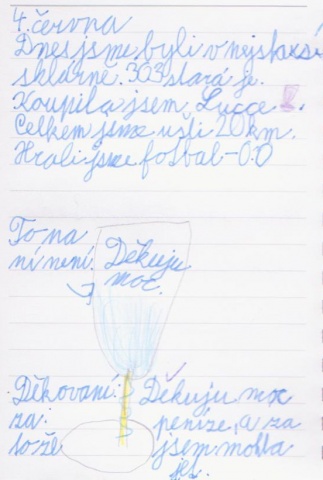 4. června
Dnes jsme byli v nejstarší
sklárně. 303 stará je.
Koupila jsem Lucce
Celkem jsme ušli 20 km.
Hráli jsme fotbal - 0:0
To na
ní není.
Děkuju
moc.
Děkovaní:
za:
to že
Děkuju moc
peníze, a za
jsem mohla
jet.